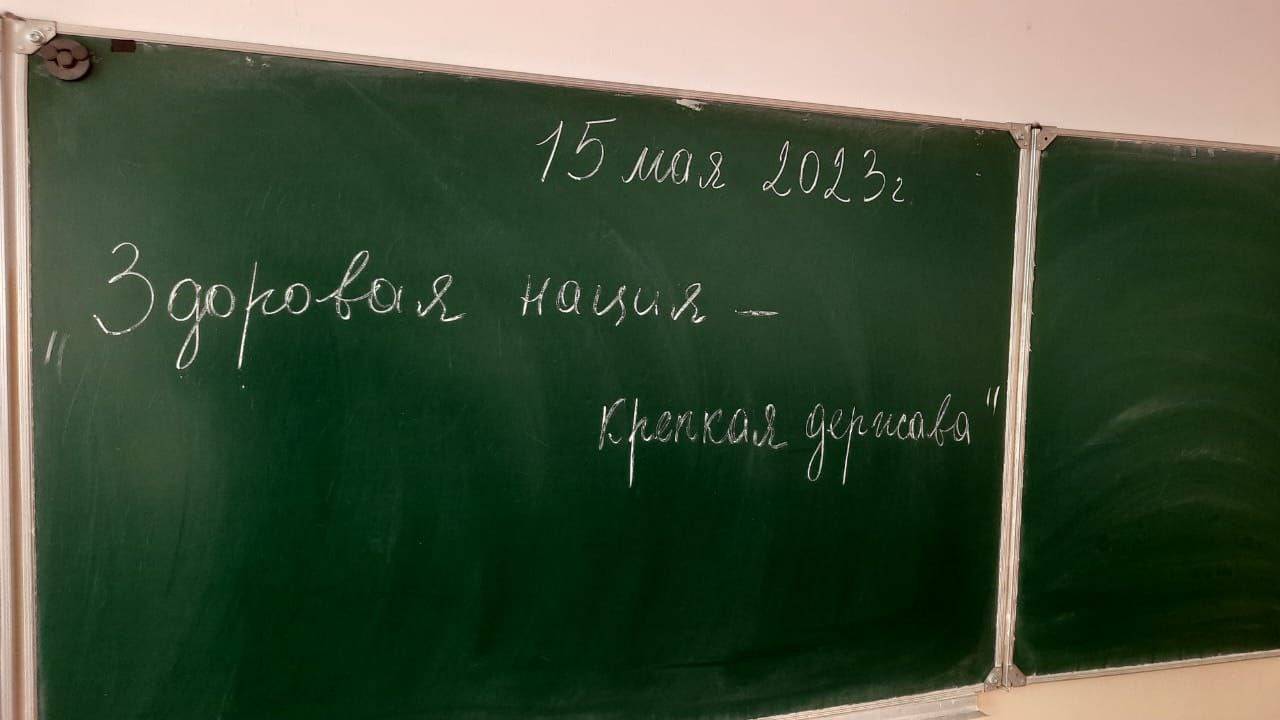 15 мая 2023г.
„Здоровая нация –
крепкая держава"